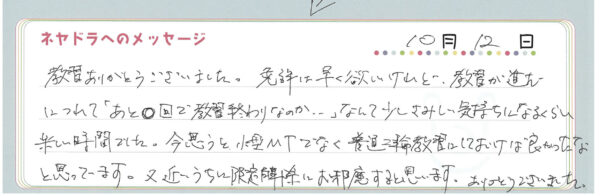 ネヤドラへのメッセージ
10月 12日
教習ありがとうございました。免許は早く欲いけれど、教習が進む
につれて「あと○回で教習終わりなのか…」なんて少しさみしい気持ちになるくらい
楽しい時間でした。今思うと小型MTでなく普通二輪教習にしておけば良かったなな
と思ってます。又近いうちに限定解除にお邪魔すると思います。ありがとうございました。